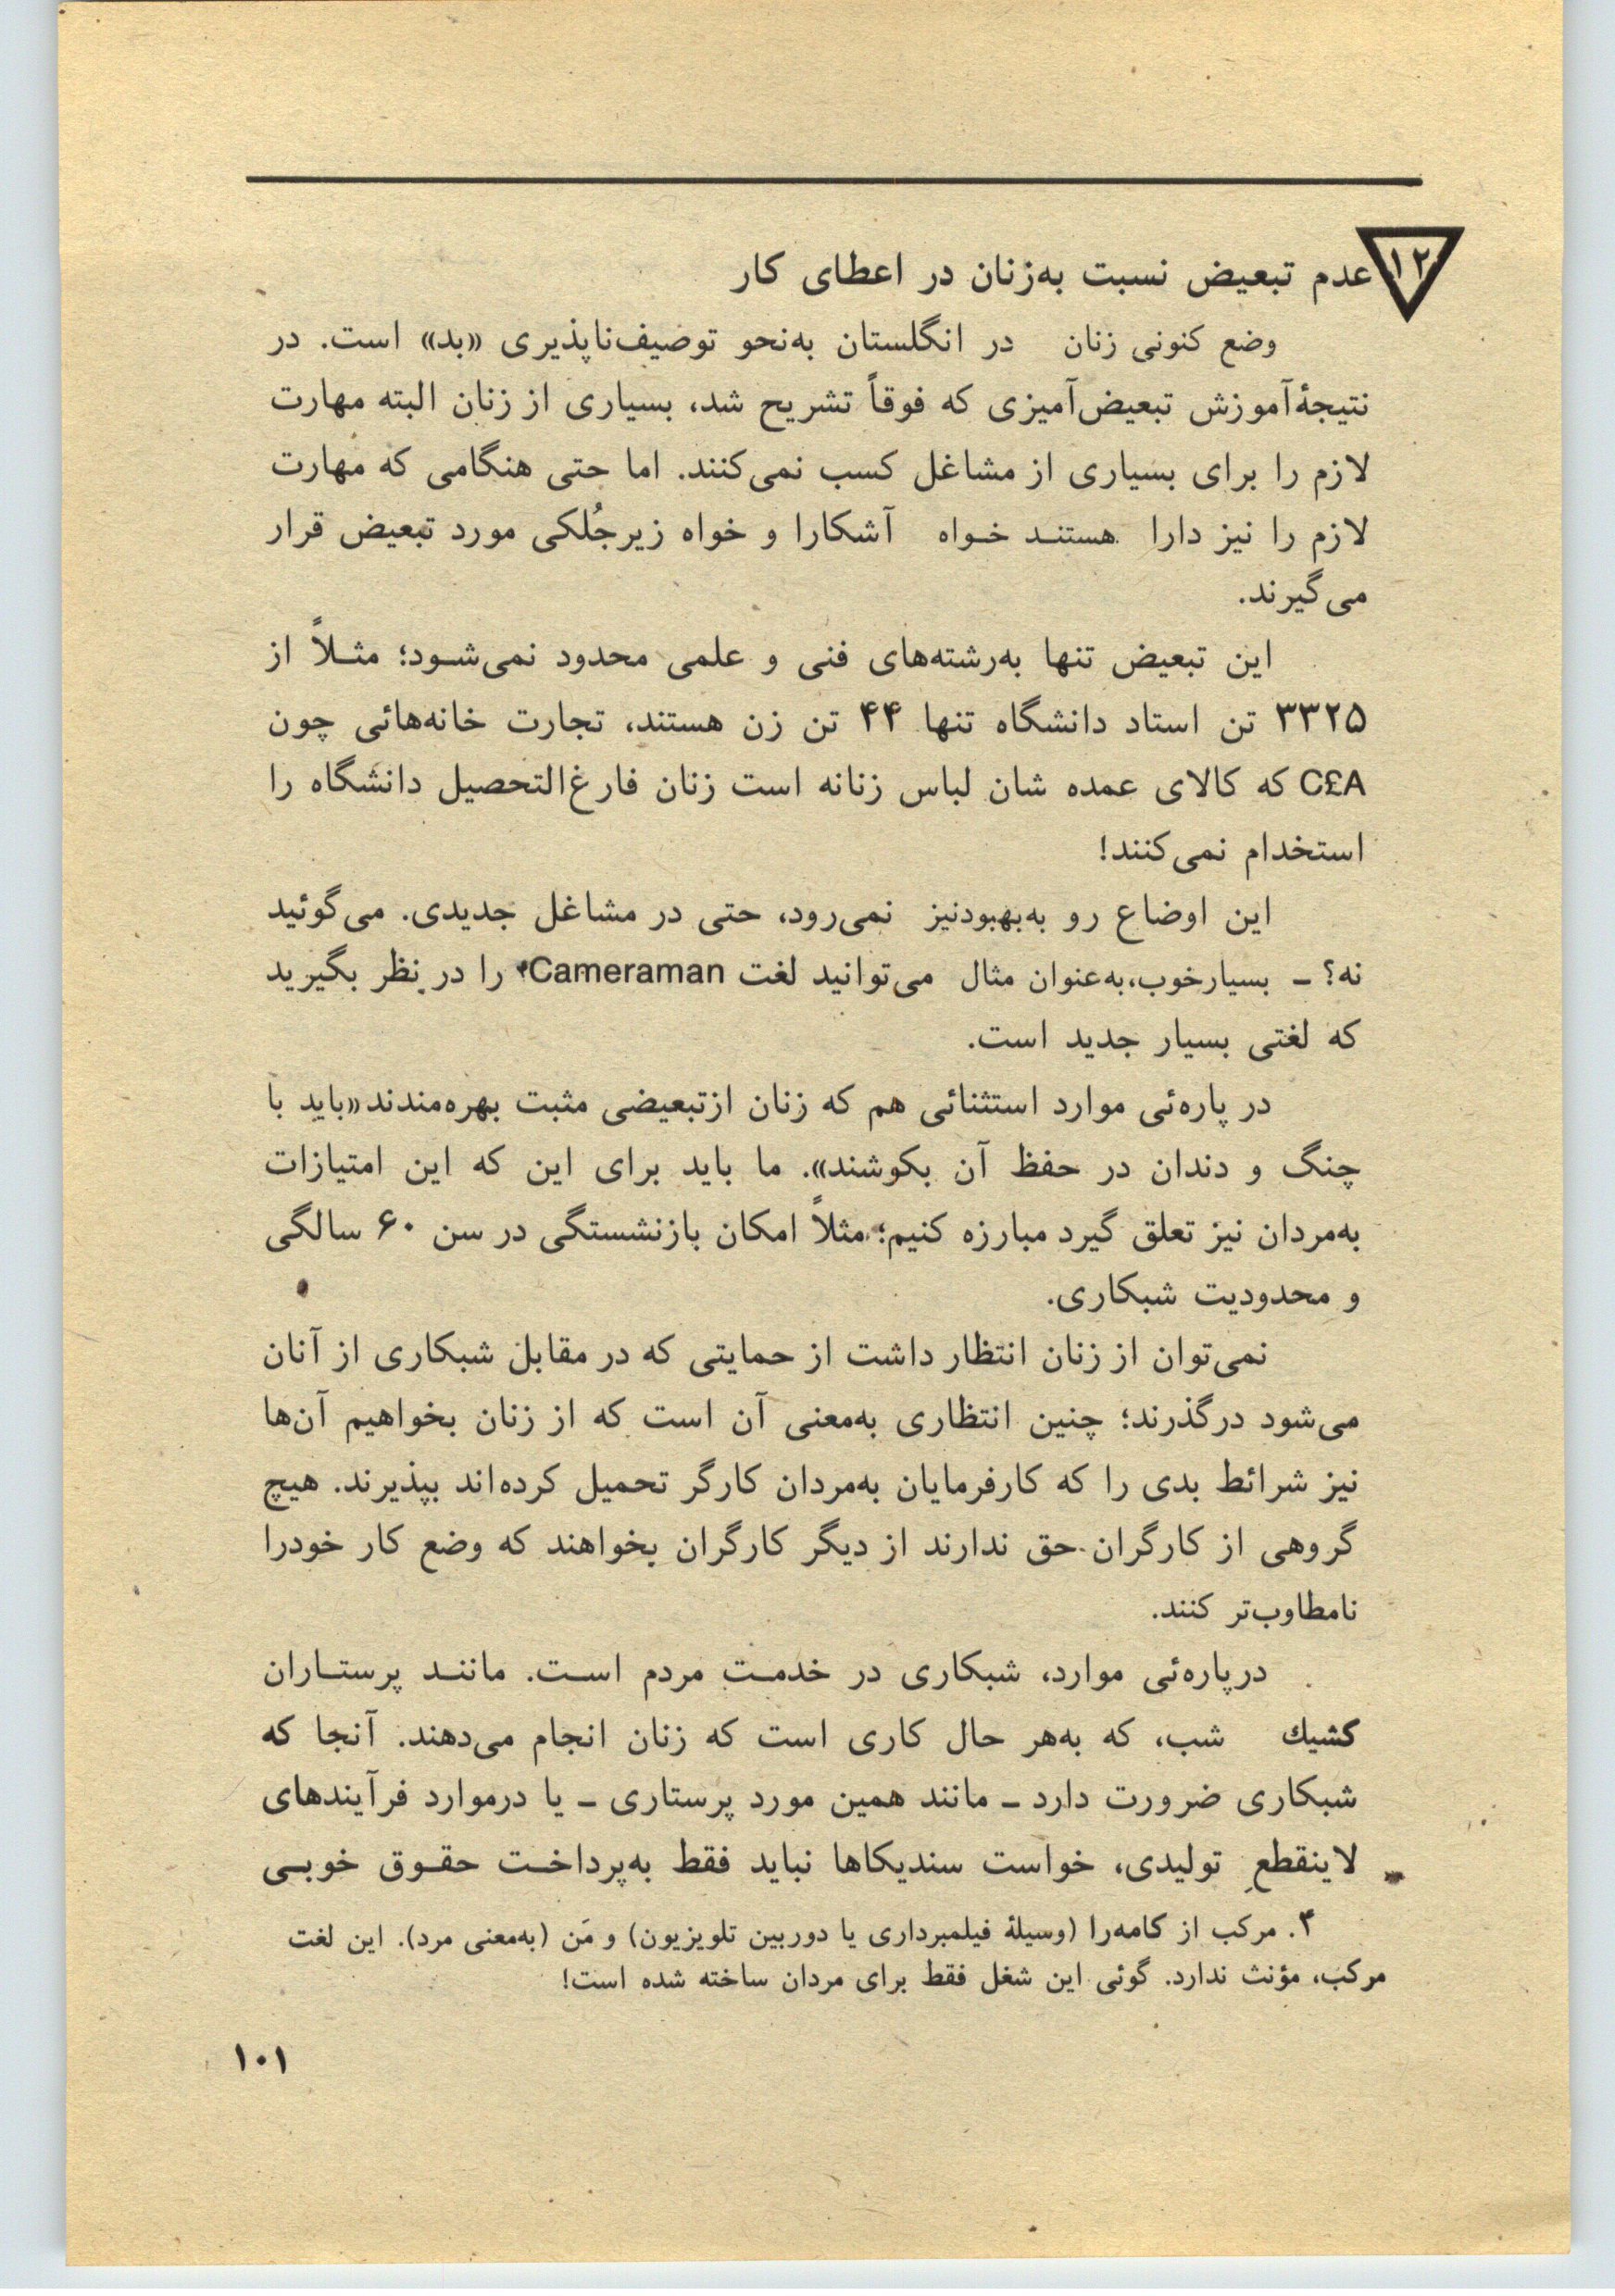 ۱۲ عدم تبعیض نسبت به‌زنان در اعطای کار
وضع کنونی زنان در انگلستان به‌نحو توصیف‌ناپذیری «بد» است. در
نتیجهٔ آموزش تبعیض‌آمیزی که فوقاً تشریح شد، بسیاری از زنان البته مهارت
لازم را برای بسیاری از مشاغل کسب نمی‌کنند. اما حتی هنگامی که مهارت
لازم را نیز دارا هستند خواه آشکارا و خواه زیرجُلکی مورد تبعیض قرار
می‌گیرند.
این تبعیض تنها به‌رشته‌های فنی و علمی محدود نمی‌شود؛ مثلاً از
۳۳۲۵ تن استاد دانشگاه تنها ۴۴ تن زن هستند، تجارت خانه‌هائی چون
C£A که کالای عمده شان لباس زنانه است زنان فارغ‌التحصیل دانشگاه را
استخدام نمی‌کنند!
این اوضاع رو به‌بهبودنیز نمی‌رود، حتی در مشاغل جدیدی. می‌گوئید
نه؟ ـ بسیارخوب، به‌عنوان مثال می‌توانید لغت Cameraman۴ را در نظر بگیرید
که لغتی بسیار جدید است.
در پاره‌ئی موارد استثنائی هم که زنان ازتبعیضی مثبت بهره‌مندند «باید با
چنگ و دندان در حفظ آن بکوشند». ما باید برای این که این امتیازات
به‌مردان نیز تعلق گیرد مبارزه کنیم؛ مثلاً امکان بازنشستگی در سن ۶۰ سالگی
و محدودیت شبکاری.
نمی‌توان از زنان انتظار داشت از حمایتی که در مقابل شبکاری از آنان
می‌شود درگذرند؛ چنین انتظاری به‌معنی آن است که از زنان بخواهیم آن‌ها
نیز شرائط بدی را که کارفرمایان به‌مردان کارگر تحمیل کرده‌اند بپذیرند. هیچ
گروهی از کارگران حق ندارند از دیگر کارگران بخواهند که وضع کار خودرا
نامطاوب‌تر کنند.
درپاره‌ئی موارد، شبکاری در خدمت مردم است. مانند پرستاران
کشیك شب، که به‌هر حال کاری است که زنان انجام می‌دهند. آنجا که
شبکاری ضرورت دارد ـ مانند همین مورد پرستاری ـ یا درموارد فرآیندهای
لاینقطعِ تولیدی، خواست سندیکاها نباید فقط به‌پرداخت حقوق خوبی
۴. مرکب از کامه‌را (وسیلهٔ فیلمبرداری یا دوربین تلویزیون) و مَن (به‌معنی مرد). این لغت
مرکب، مؤنث ندارد. گوئی این شغل فقط برای مردان ساخته شده است!
۱۰۱